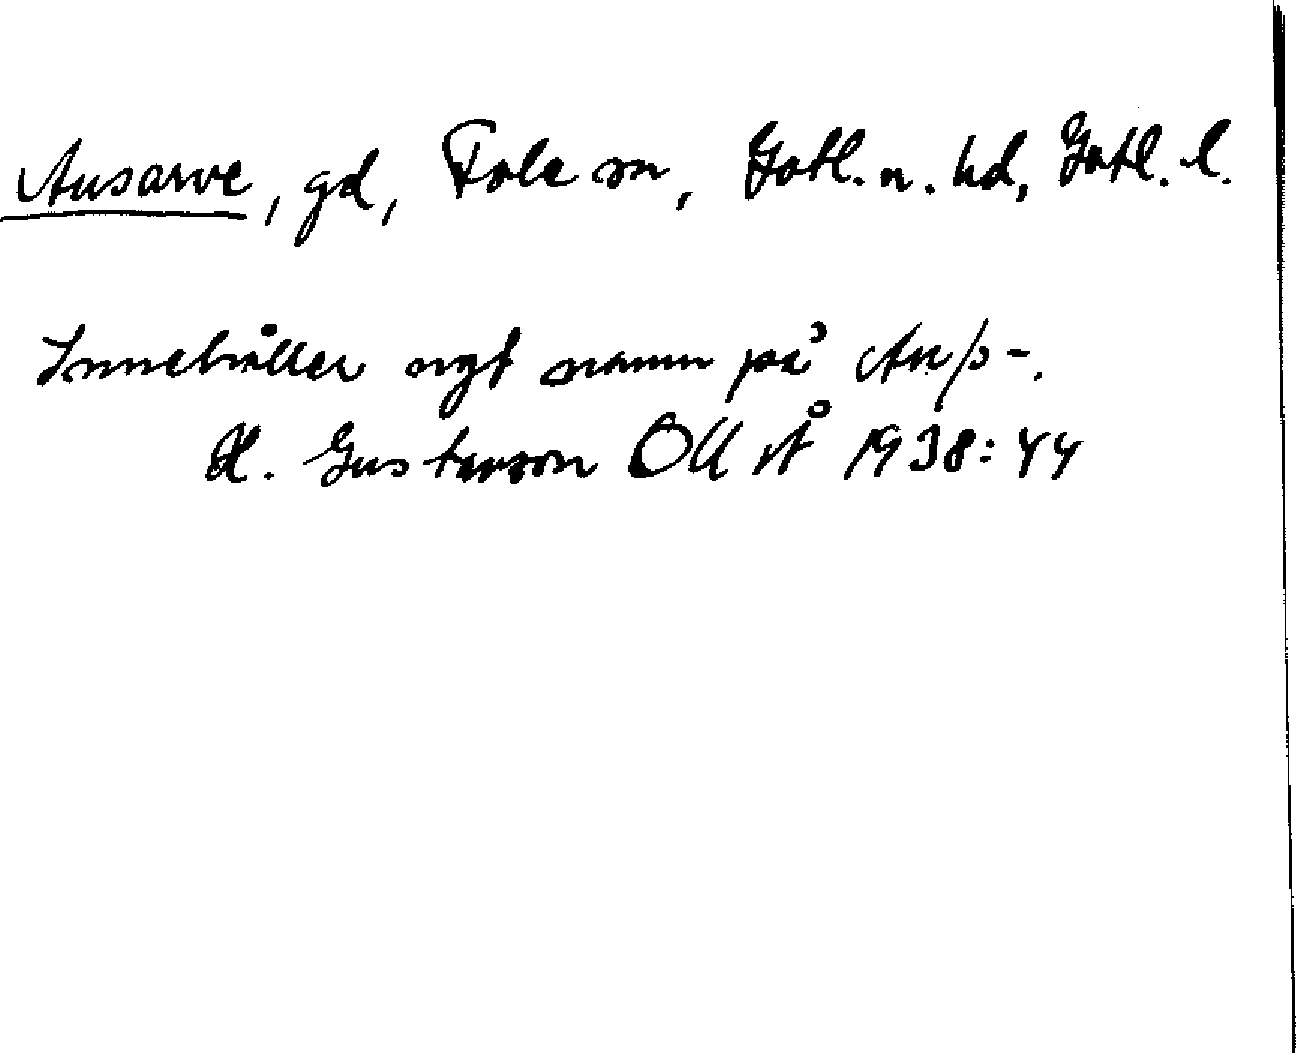 Ausarve, gd, Fole sn, Gotl. n. hd, Gotl. l.
Innehåller ngt namn på Auþ-.
H. Gustavson OUÅ 1938: 44